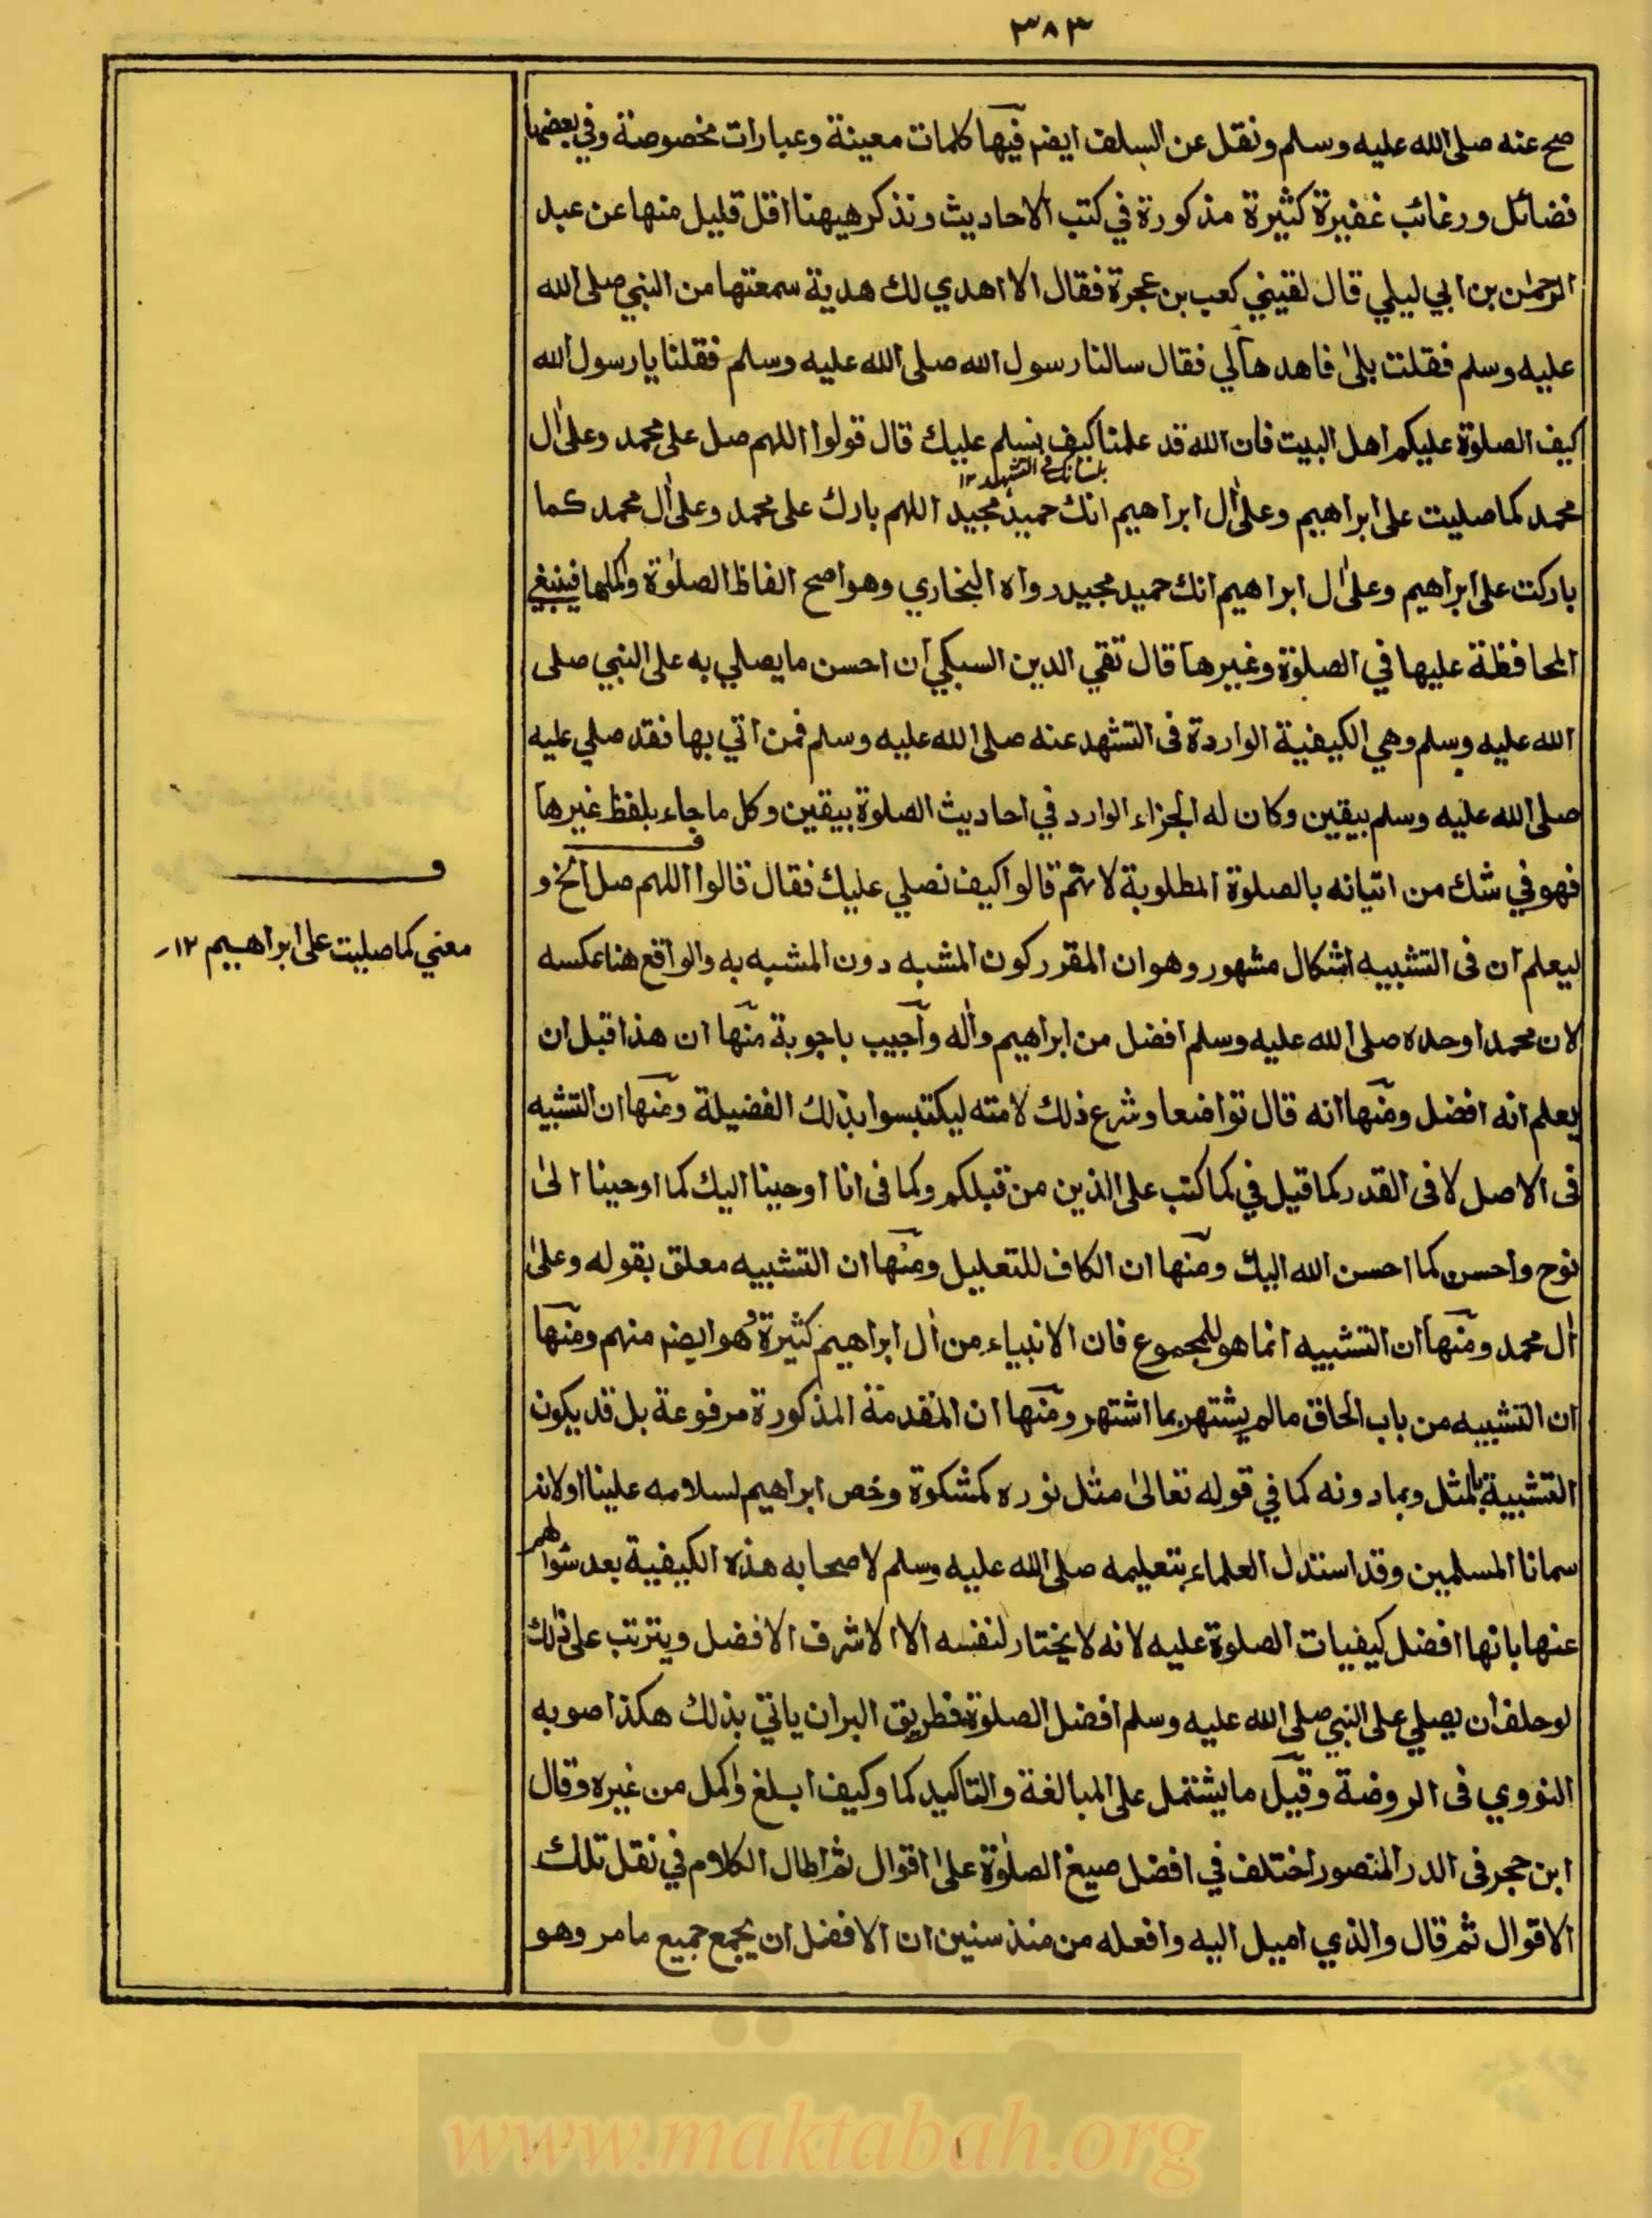 ٣٨٣
صح عنه صلى الله عليه وسلم ونقل عن السلف ايضم فيها كلمات معينة وعبارات مخصوصة وفي بعضها
فضائل ورغائب غفيرة كثيرة مذكورة في كتب الاحاديث ونذكر هيهنا اقل قليل منها عن عبد
الرحمٰن بن ابي ليلي قال لقيني كعب بن عجرة فقال الا اهدي لك هدية سمعتها من النبي صلى الله
عليه وسلم فقلت بلىٰ فاهدها لي فقال سالنا رسول الله صلى الله عليه وسلم فقلنا يا رسول الله
كيف الصلوٰة عليكم اهل البيت فان الله قد علمنا كيف نسلم عليك قال قولوا اللهم صل على محمد وعلىٰ اٰل
بلسانك في التشهد ١٢
محمد كما صليت على ابراهيم وعلىٰ اٰل ابراهيم انك حميد مجيد اللهم بارك على محمد وعلىٰ اٰل محمد كما
باركت على ابراهيم وعلىٰ اٰل ابراهيم انك حميد مجيد رواه البخاري وهو اصح الفاظ الصلوٰة واكملها فينبغي
المحافظة عليها في الصلوٰة وغيرها قال تقي الدين السبكي ان احسن ما يصلي به على النبي صلى
الله عليه وسلم وهي الكيفية الواردة في التشهد عنه صلى الله عليه وسلم فمن اتي بها فقد صلي عليه
صلى الله عليه وسلم بيقين وكان له الجزاء الوارد في احاديث الصلوة بيقين وكل ما جاء بلفظ غيرها
فهو في شك من اتيانه بالصلوة المطلوبة لانهم قالوا كيف نصلي عليك فقال قالوا اللهم صل الخ و
ف
ليعلم ان في التشبيه اشكال مشهور وهو ان المقرر كون المشبه دون المشبه به والواقع هنا عكسه
معني كما صليت على ابراهيم ١٢
لان محمدا وحده صلى الله عليه وسلم افضل من ابراهيم واٰله واجيب باجوبة منها ان هذا قبل ان
يعلم انه افضل ومنها انه قال تواضعا وشرع ذلك لامته ليكتبسوا بذلك الفضيلة ومنها ان التشبيه
في الاصل لا في القدر كما قيل في كما كتب على الذين من قبلكم وكما في انا اوحينا اليك كما اوحينا الىٰ
نوح واحسن كما احسن الله اليك ومنها ان الكاف للتعليل ومنها ان التشبيه معلق بقوله وعلىٰ
اٰل محمد ومنها ان التشبيه انما هو للمجموع فان الانبياء من اٰل ابراهيم كثيرة وهو ايضم منهم ومنها
ان التشبيه من باب الحاق ما لم يشتهر بما اشتهر ومنها ان المقدمة المذكورة مرفوعة بل قد يكون
التشبيه بالمثل وبما دونه كما في قوله تعالىٰ مثل نوره كمشكوة وخص ابراهيم لسلامه علينا اولانه
سمانا المسلمين وقد استدل العلماء بتعليمه صلى الله عليه وسلم لاصحابه هذه الكيفية بعد سوالهم
عنها بانها افضل كيفيات الصلوة عليه لانه لا يختار لنفسه الا الاشرف الافضل ويترتب على ذلك
لو حلف ان يصلي على النبي صلى الله عليه وسلم افضل الصلوة فطريق البر ان ياتي بذلك هكذا صوبه
النووي في الروضة وقيل ما يشتمل على المبالغة والتاكيد كما وكيف ابلغ واكمل من غيره وقال
ابن حجر في الدر المنصور اختلف في افضل صيغ الصلوٰة علىٰ اقوال ثم اطال الكلام في نقل تلك
الاقوال ثم قال والذي اميل اليه وافعله من منذ سنين ان الافضل ان يجمع جميع ما مر وهو
www.maktabah.org